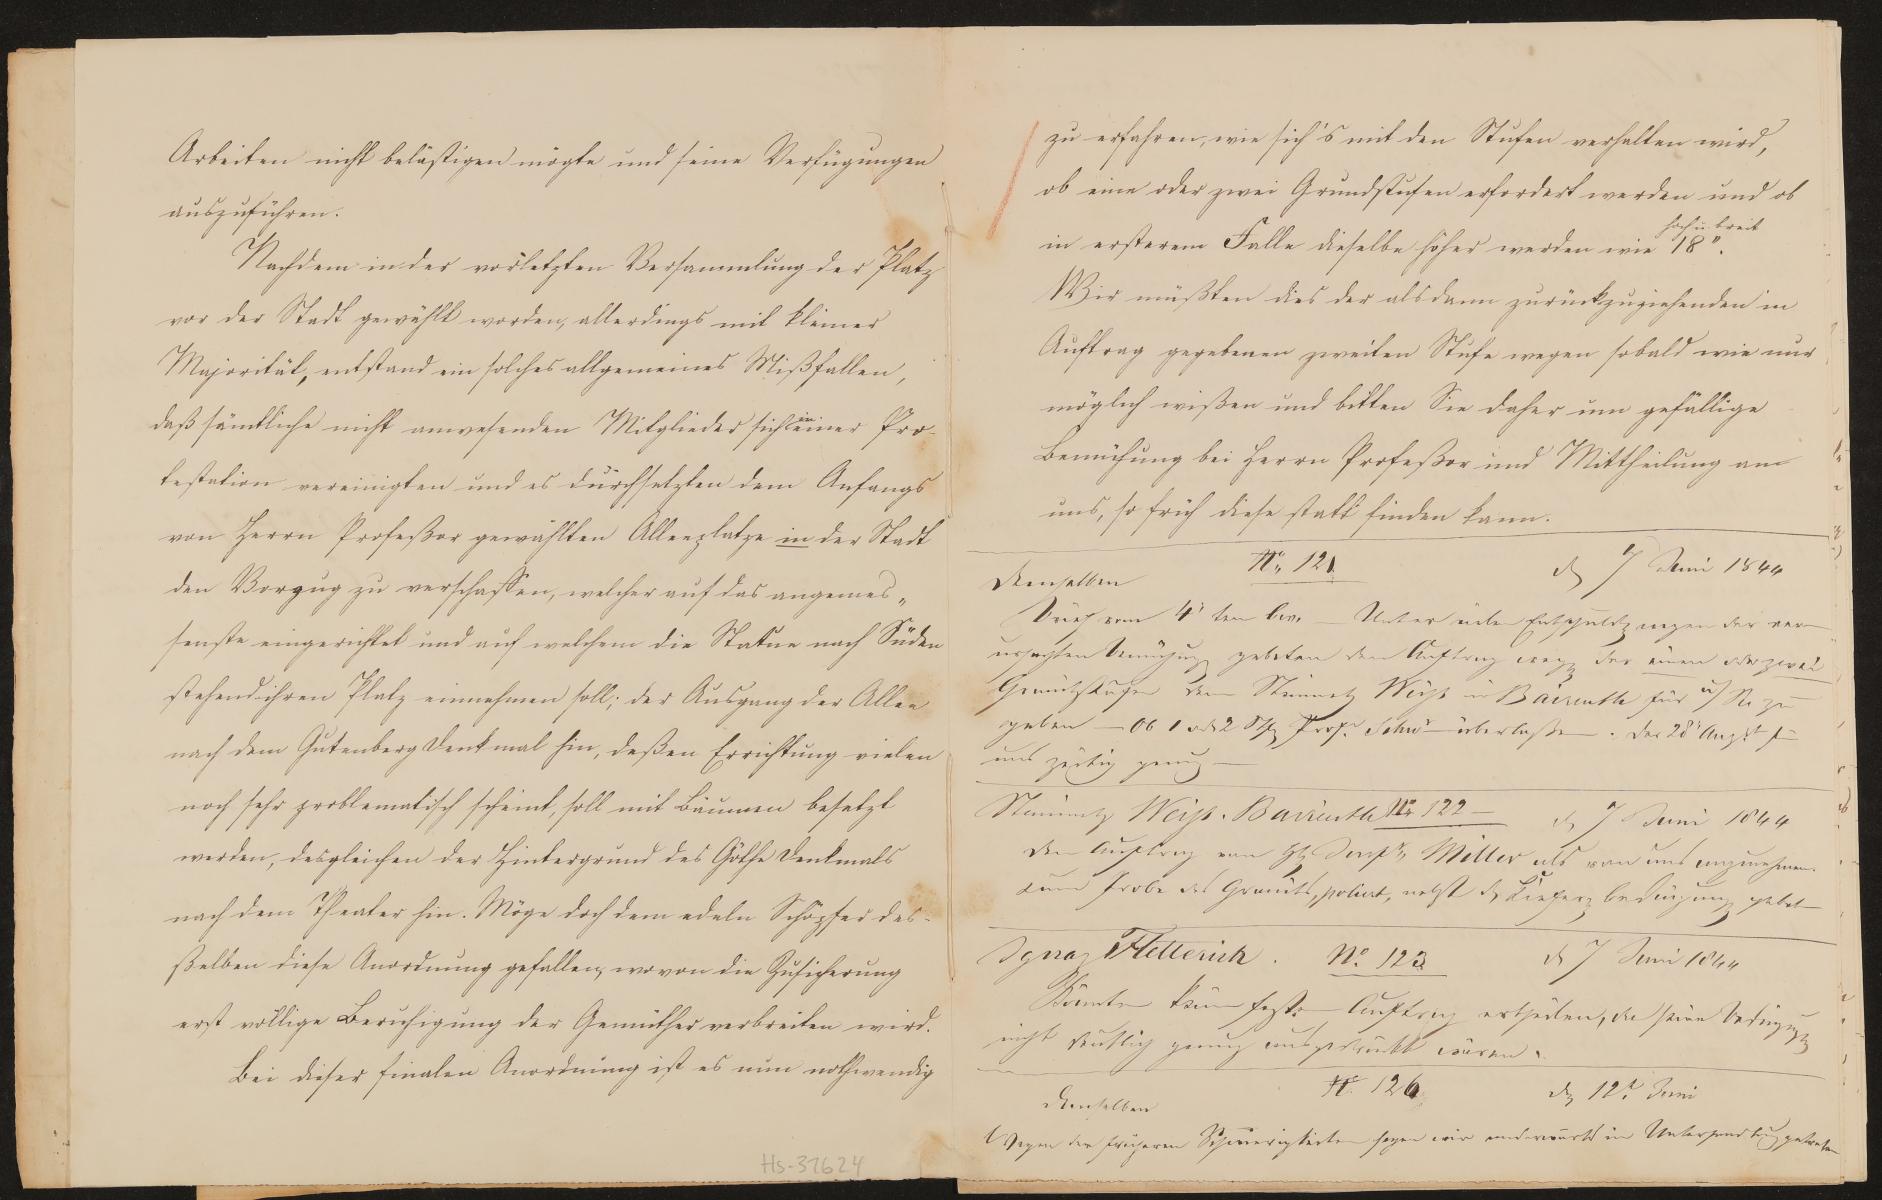 Arbeiten nicht belästigen mögte und seine Verfügungen
auszuführen.
Nachdem in der vorletzten Versammlung der Platz
vor der Stadt gewählt worden, allerdings mit kleiner
Majorität, entstand ein solches allgemeines Mißfallen,
daß sämtliche nicht anwesenden Mitglieder sich in einer Pro-
testation vereinigten und es durchsetzten dem Anfangs
von Herrn Profeßor gewählten Alleeplatze in der Stadt
den Vorzug zu verschaffen, welcher auf das angemes„
senste eingerichtet und auf welchem die Statue nach Süden
stehend ihren Platz einnehmen soll; der Ausgang der Allee
nach dem Gutenberg Denkmal hin, deßen Errichtung vielen
noch sehr problematisch scheint, soll mit Bäumen besetzt
werden, desgleichen der Hintergrund des Göthe Denkmals
nach dem Theater hin. Möge doch dem edeln Schöpfer des-
ßelben diese Anordnung gefallen, wovon die Zusicherung
erst völlige Beruhigung der Gemüther verbreiten wird.
Bei dieser finalen Anordnung ist es nun nothwendig
Hs-31624
zu erfahren, wie sich's mit den Stufen verhalten wird,
ob eine oder zwei Grundstufen erfordert werden und ob
hoch u breit
in ersterem Falle dieselbe höher werden wie 18".
Wir müßten dies der alsdann zurückzuziehenden in
Auftrag gegebenen zweiten Stufe wegen sobald wie nur
möglich wißen und bitten Sie daher um gefällige
Bemühung bei Herrn Profeßor und Mittheilung an
uns, so früh diese statt finden kann.
Demselben No. 121 d 7 Juni 1844
Brief vom 4ten Unter vielen Entschuldigungen der ver-
ursachten Bemühung gebeten den Auftrag wegen der einen oder zwei
Granitstufen dem Steinmetz Weiß in Baireuth für zu
geben — Ob 1 od 2 Profr Schw überlaßen. Der 28 Augst
uns zeitig genug —
Steinmetz Weiß. Baireuth No 122 — d 7 Juni 1844
Den Auftrag von H Miller als von uns anzunehmen.
Eine Probe des Granits, polirt, nebst d Lieferz bedingung gebet
Ignaz Hellerich. No. 123 d 7 Juni 1844
Könnten keinen festen Auftrag ertheilen, da seine Bedingung
nicht deutlich genug ausgedrückt wären.
Demselben No. 126 d 12t Juni
Wegen der früheren Schwierigkeiten seyen wir anderwärts in Unterhandlung getreten